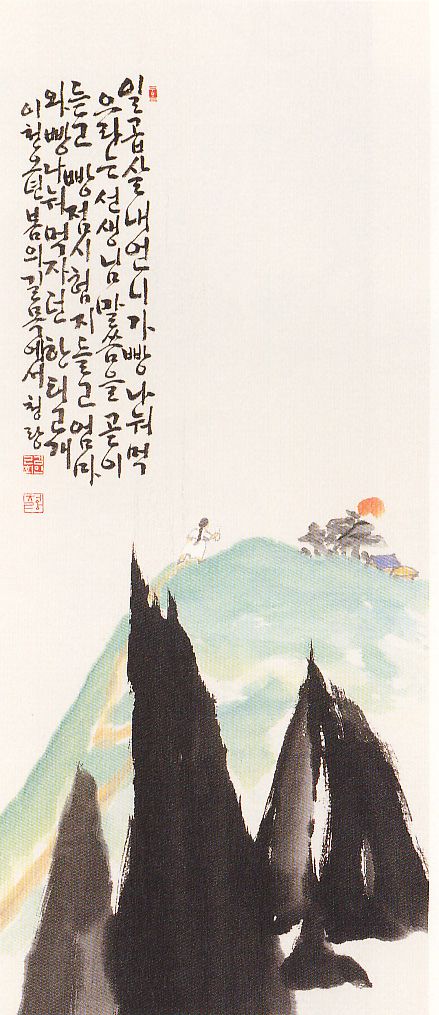 일곱살 내 언니가 빵 나눠 먹
으라는 선생님 말씀을 곧이
듣고 빵점 시험지 들고 엄마
와 빵 나눠 먹자던 한티고개
이천 년 봄의 길목에서 청랑